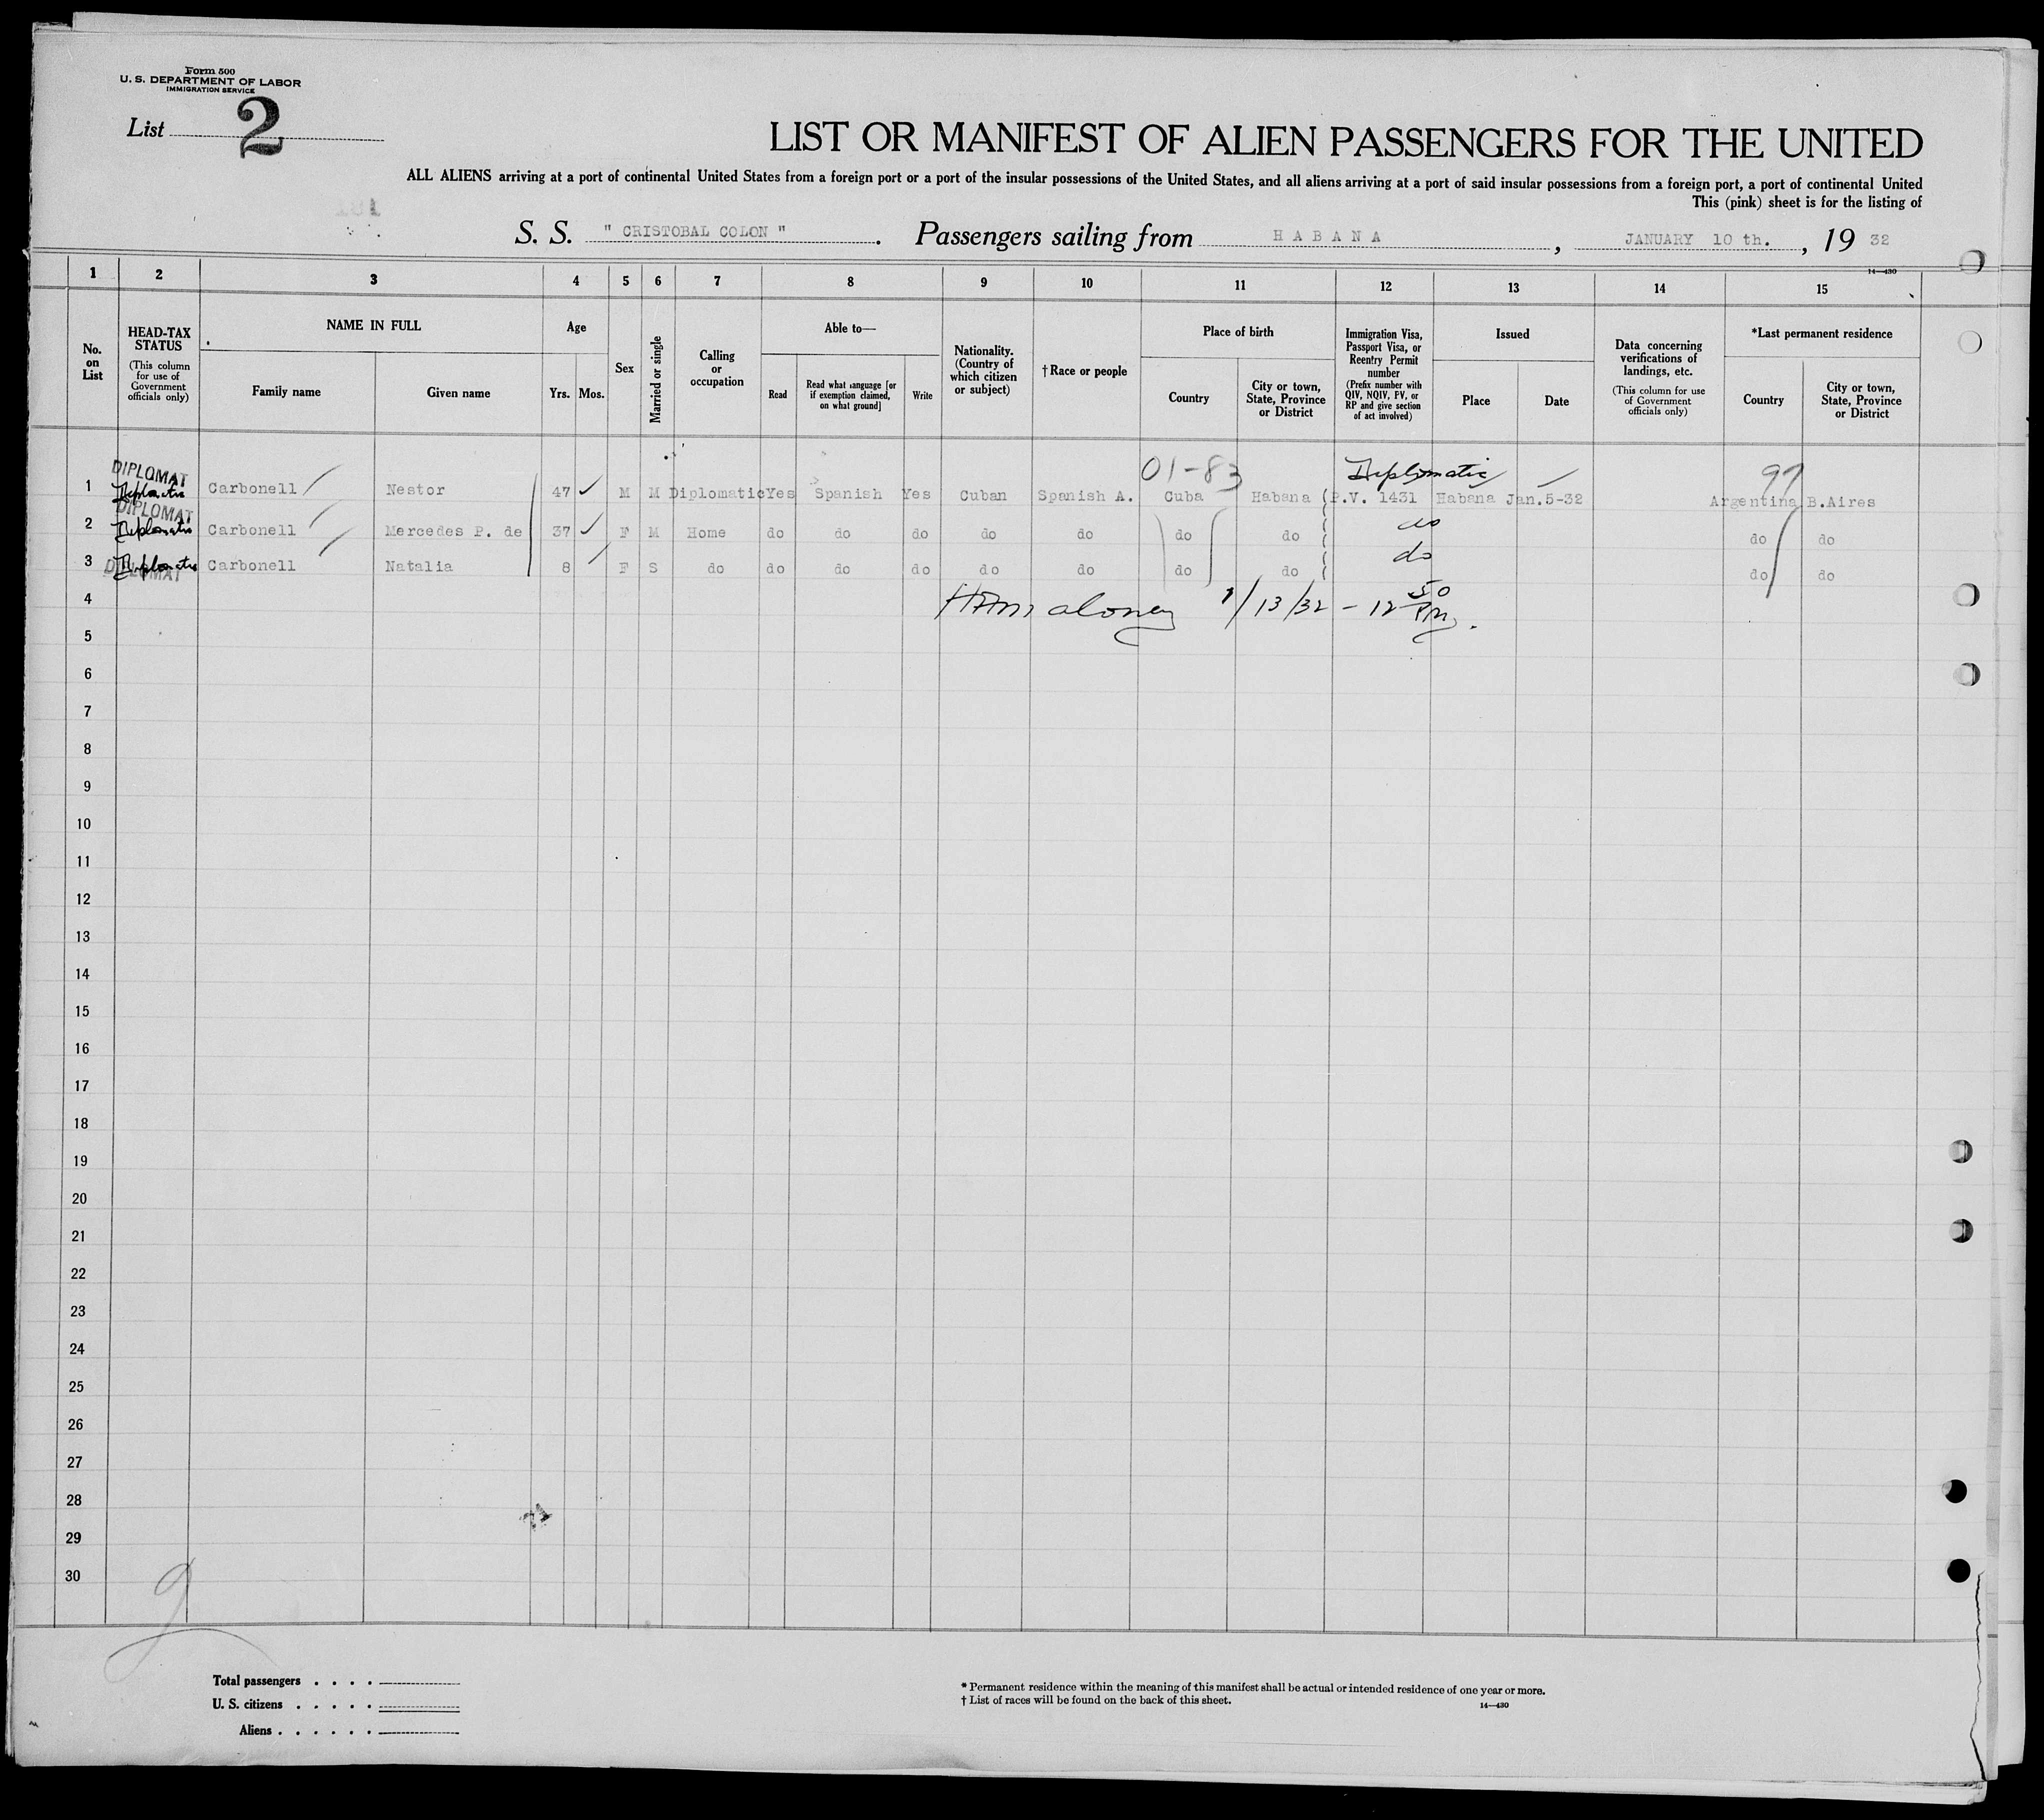 Form 500
U. S. DEPARTMENT OF LABOR
IMMIGRATION SERVICE
List 2
LIST OR MANIFEST OF ALIEN PASSENGERS FOR THE UNITED
ALL ALIENS arriving at a port of continental United States from a foreign port or a port of the insular possessions of the United States, and all aliens arriving at a port of said insular possessions from a foreign port, a port of continental United
This (pink) sheet is for the listing of
S. S. " CRISTOBAL COLON " . Passengers sailing from HABANA , JANUARY 10 th. , 19 32
14—430
1 2 3 4 5 6 7 8 9 10 11 12 13 14 15
No. on List
HEAD-TAX STATUS
(This column for use of Government officials only)
NAME IN FULL
Family name
Given name
Age
Yrs. Mos.
Sex
Married or single
Calling or occupation
Able to—
Read
Read what language [or if exemption claimed, on what ground]
Write
Nationality. (Country of which citizen or subject)
† Race or people
Place of birth
Country
City or town, State, Province or District
Immigration Visa, Passport Visa, or Reentry Permit number
(Prefix number with QIV, NQIV, PV, or RP and give section of act involved)
Issued
Place
Date
Data concerning verifications of landings, etc.
(This column for use of Government officials only)
*Last permanent residence
Country
City or town, State, Province or District
DIPLOMAT 01-83 Diplomatic 99
1 Diplomatic Carbonell Nestor 47 M M Diplomatic Yes Spanish Yes Cuban Spanish A. Cuba Habana P.V. 1431 Habana Jan.5-32 Argentina B.Aires
DIPLOMAT
2 Diplomatic Carbonell Mercedes P. de 37 F M Home do do do do do do do do do do
3 Diplomatic Carbonell Natalia 8 F S do do do do do do do do do do do
DIPLOMAT
4 1/13/32 - 12 50 PM.
5
6
7
8
9
10
11
12
13
14
15
16
17
18
19
20
21
22
23
24
25
26
27
28
29
30
Total passengers . . . .
U. S. citizens . . . . .
Aliens . . . . . .
* Permanent residence within the meaning of this manifest shall be actual or intended residence of one year or more.
† List of races will be found on the back of this sheet.
14—430